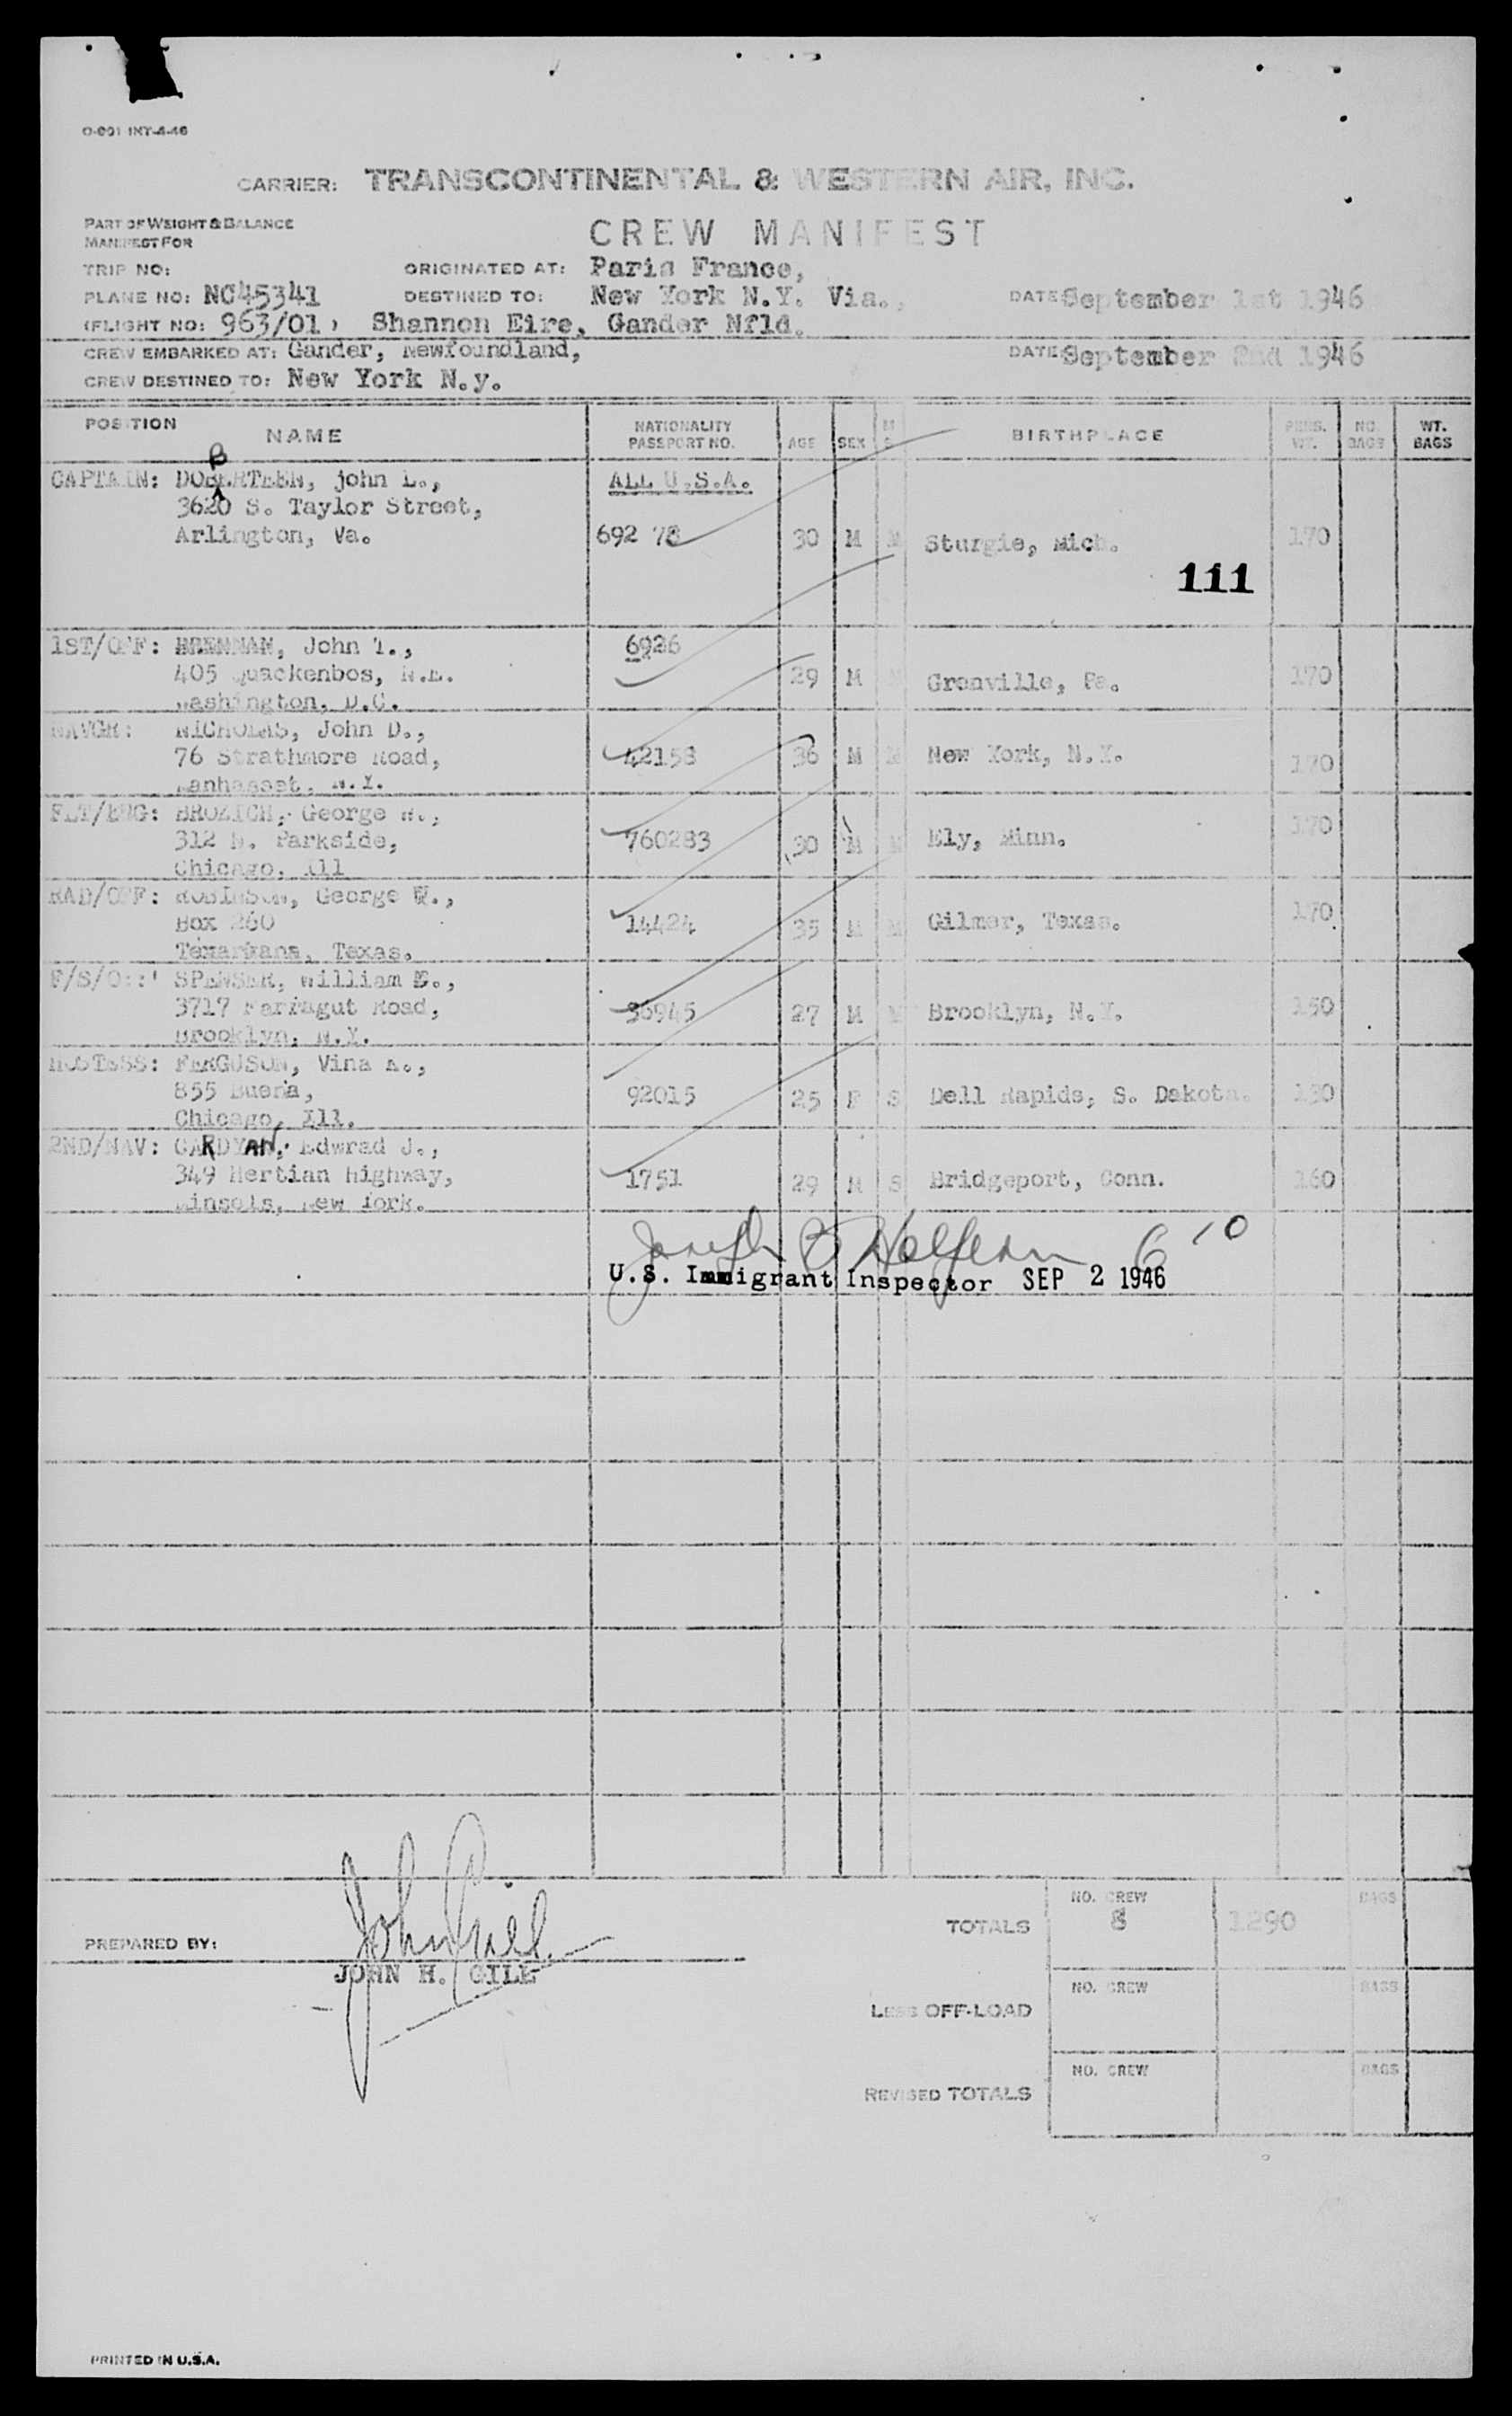 O-001 INT-4-46
CARRIER: TRANSCONTINENTAL & WESTERN AIR, INC.
PART OF WEIGHT & BALANCE
MANIFEST FOR
CREW MANIFEST
TRIP NO: ORIGINATED AT: Paris France,
PLANE NO: NC45341 DESTINED TO: New York N.Y. Via., DATE September 1st 1946
(FLIGHT NO: 963/01) Shannon Eire, Gander Nfld.
CREW EMBARKED AT: Gander, Newfoundland, DATE September 2nd 1946
CREW DESTINED TO: New York N.y.
POSITION NAME NATIONALITY PASSPORT NO. AGE SEX M S BIRTHPLACE PERS. WT. NO. BAGS WT. BAGS
CAPTAIN: DOBERTEEN, john L., ALL U.S.A.
3620 S. Taylor Street,
Arlington, Va. 692 78 30 M M Sturgis, Mich. 170
111
1ST/OFF: BRENNAN, John T., 6926
405 Quackenbos, N.E. 29 M M Grenville, Pa. 170
Washington, D.C.
NAVGR: NICHOLAS, John D.,
76 Strathmore Road, 42158 36 M M New York, N.Y. 170
Manhasset, N.Y.
FLT/ENG: BROZICH, George
312 N. Parkside, 760283 30 M M Ely, Minn. 170
Chicago, Ill
RAD/OFF: ROBINSON, George W.,
Box 260 14424 35 M M Gilmer, Texas. 170
Texarkana, Texas.
F/S/O: SPENSER, William E.,
3717 Farragut Road, 36945 27 M M Brooklyn, N.Y. 150
Brooklyn, N.Y.
HOSTESS: FERGUSON, Vina
855 Buena, 92015 25 F S Dell Rapids, S. Dakota. 130
Chicago, Ill.
2ND/NAV: Edwrad J.,
349 Hertian Highway, 1751 29 M S Bridgeport, Conn. 160
New York.
Joseph B Halfern 6 10
U.S. Immigrant Inspector SEP 2 1946
TOTALS NO. CREW 8 1290 BAGS
John Gill
PREPARED BY:
JOHN H. GILL
LESS OFF-LOAD NO. CREW BAGS
REVISED TOTALS NO. CREW BAGS
PRINTED IN U.S.A.